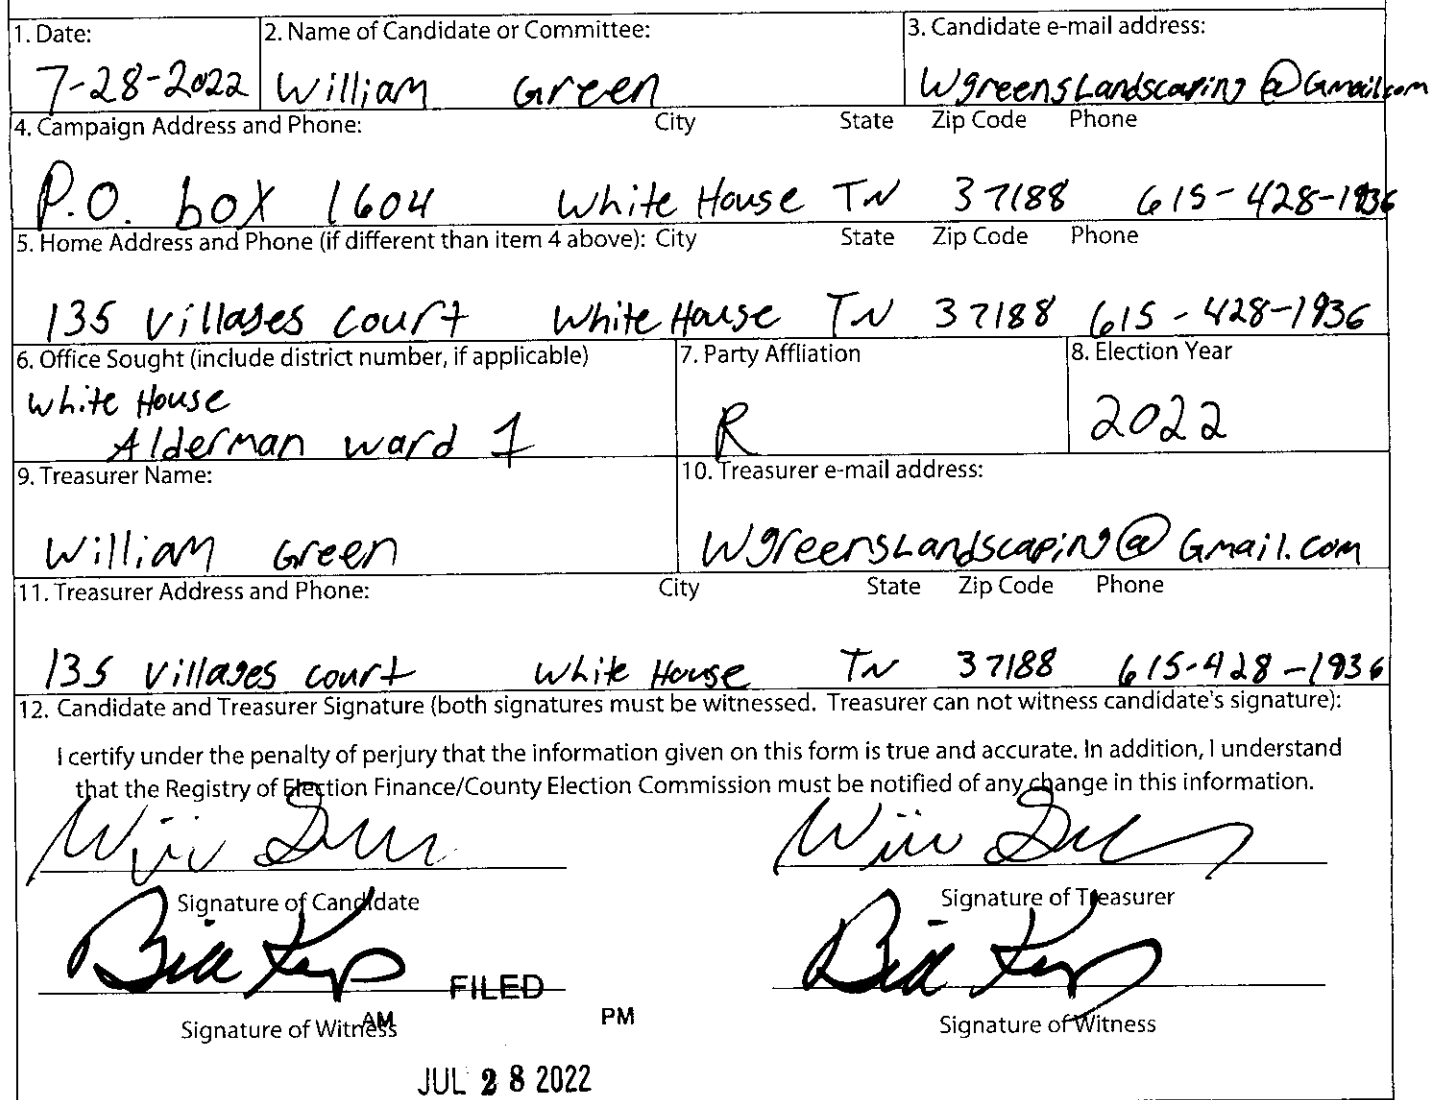 1. Date: 2. Name of Candidate or Committee: 3. Candidate e-mail address:
7-28-2022 William Green WgreensLandscaping@Gmail.com
4. Campaign Address and Phone: City State Zip Code Phone
P.O. box 1604 White House TN 37188 615-428-1936
5. Home Address and Phone (if different than item 4 above): City State Zip Code Phone
135 Villages court White House TN 37188 615-428-1936
6. Office Sought (include district number, if applicable) 7. Party Affliation 8. Election Year
White House
Alderman ward 1 R 2022
9. Treasurer Name: 10. Treasurer e-mail address:
William Green WgreensLandscaping@Gmail.com
11. Treasurer Address and Phone: City State Zip Code Phone
135 Villages court White House TN 37188 615-428-1936
12. Candidate and Treasurer Signature (both signatures must be witnessed. Treasurer can not witness candidate's signature):
I certify under the penalty of perjury that the information given on this form is true and accurate. In addition, I understand
that the Registry of Election Finance/County Election Commission must be notified of any change in this information.
Signature of Candidate Signature of Treasurer
Bill Bill
FILED
Signature of Witness AM PM Signature of Witness
JUL 28 2022